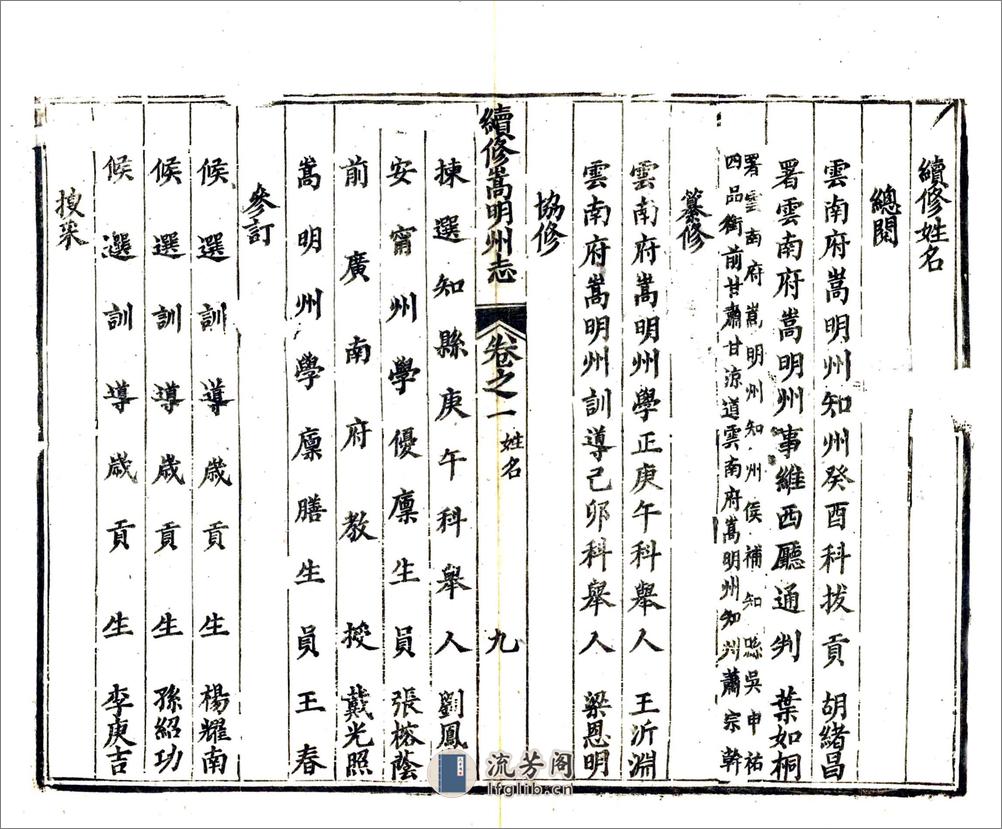 續修姓名
總閱
雲南府嵩明州知州癸酉科拔貢 胡緒昌
署雲南府嵩明州事維西廳通判 葉如桐
署雲南府嵩明州知州侯補知縣吳申祐
四品銜前甘肅甘涼道雲南府嵩明州知州蕭宗幹
纂修
雲南府嵩明州學正庚午科舉人 王沂淵
雲南府嵩明州訓導己卯科舉人 梁恩明
協修
續修嵩明州志 卷之一 姓名 九
揀選知縣庚午科舉人劉鳳
安甯州學優廩生員張榕蔭
前廣南府教授戴光照
嵩明州學廩膳生員王春
參訂
候選訓導歲貢生楊耀南
候選訓導歲貢生孫紹功
候選訓導歲貢生李庚吉
搜采
流芳阁
lfglib.cn